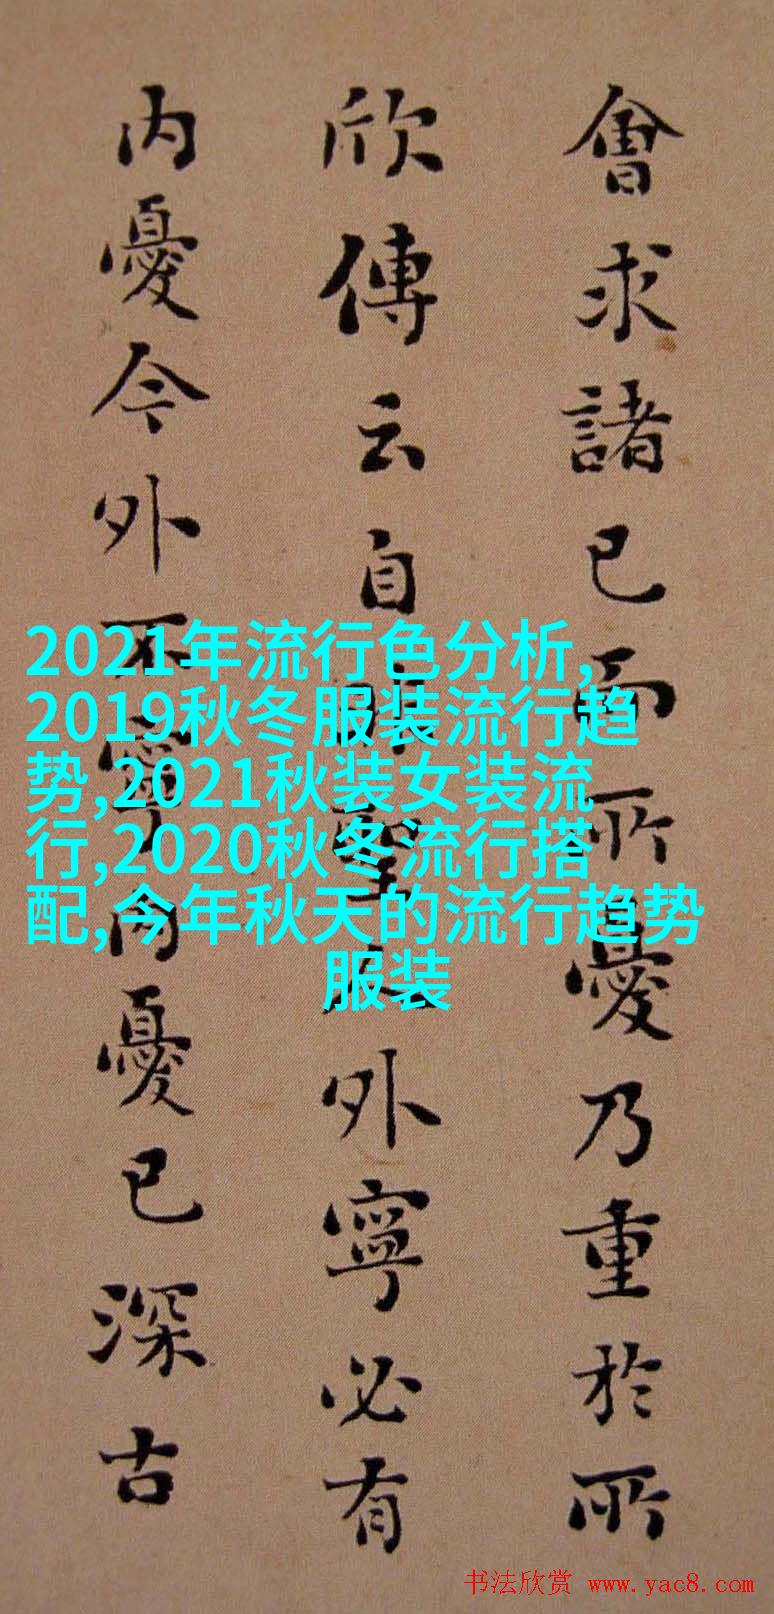 會求諸已而所憂乃重於所
欣傳云自非聖人外寧必有
内憂今外不寧内憂已深古
2021年流行色分析,
2019秋冬服装流行趋
势,2021秋装女装流
行,2020秋冬流行搭
配,今年秋天的流行趋势
服装
书法欣赏 www.yac8.com